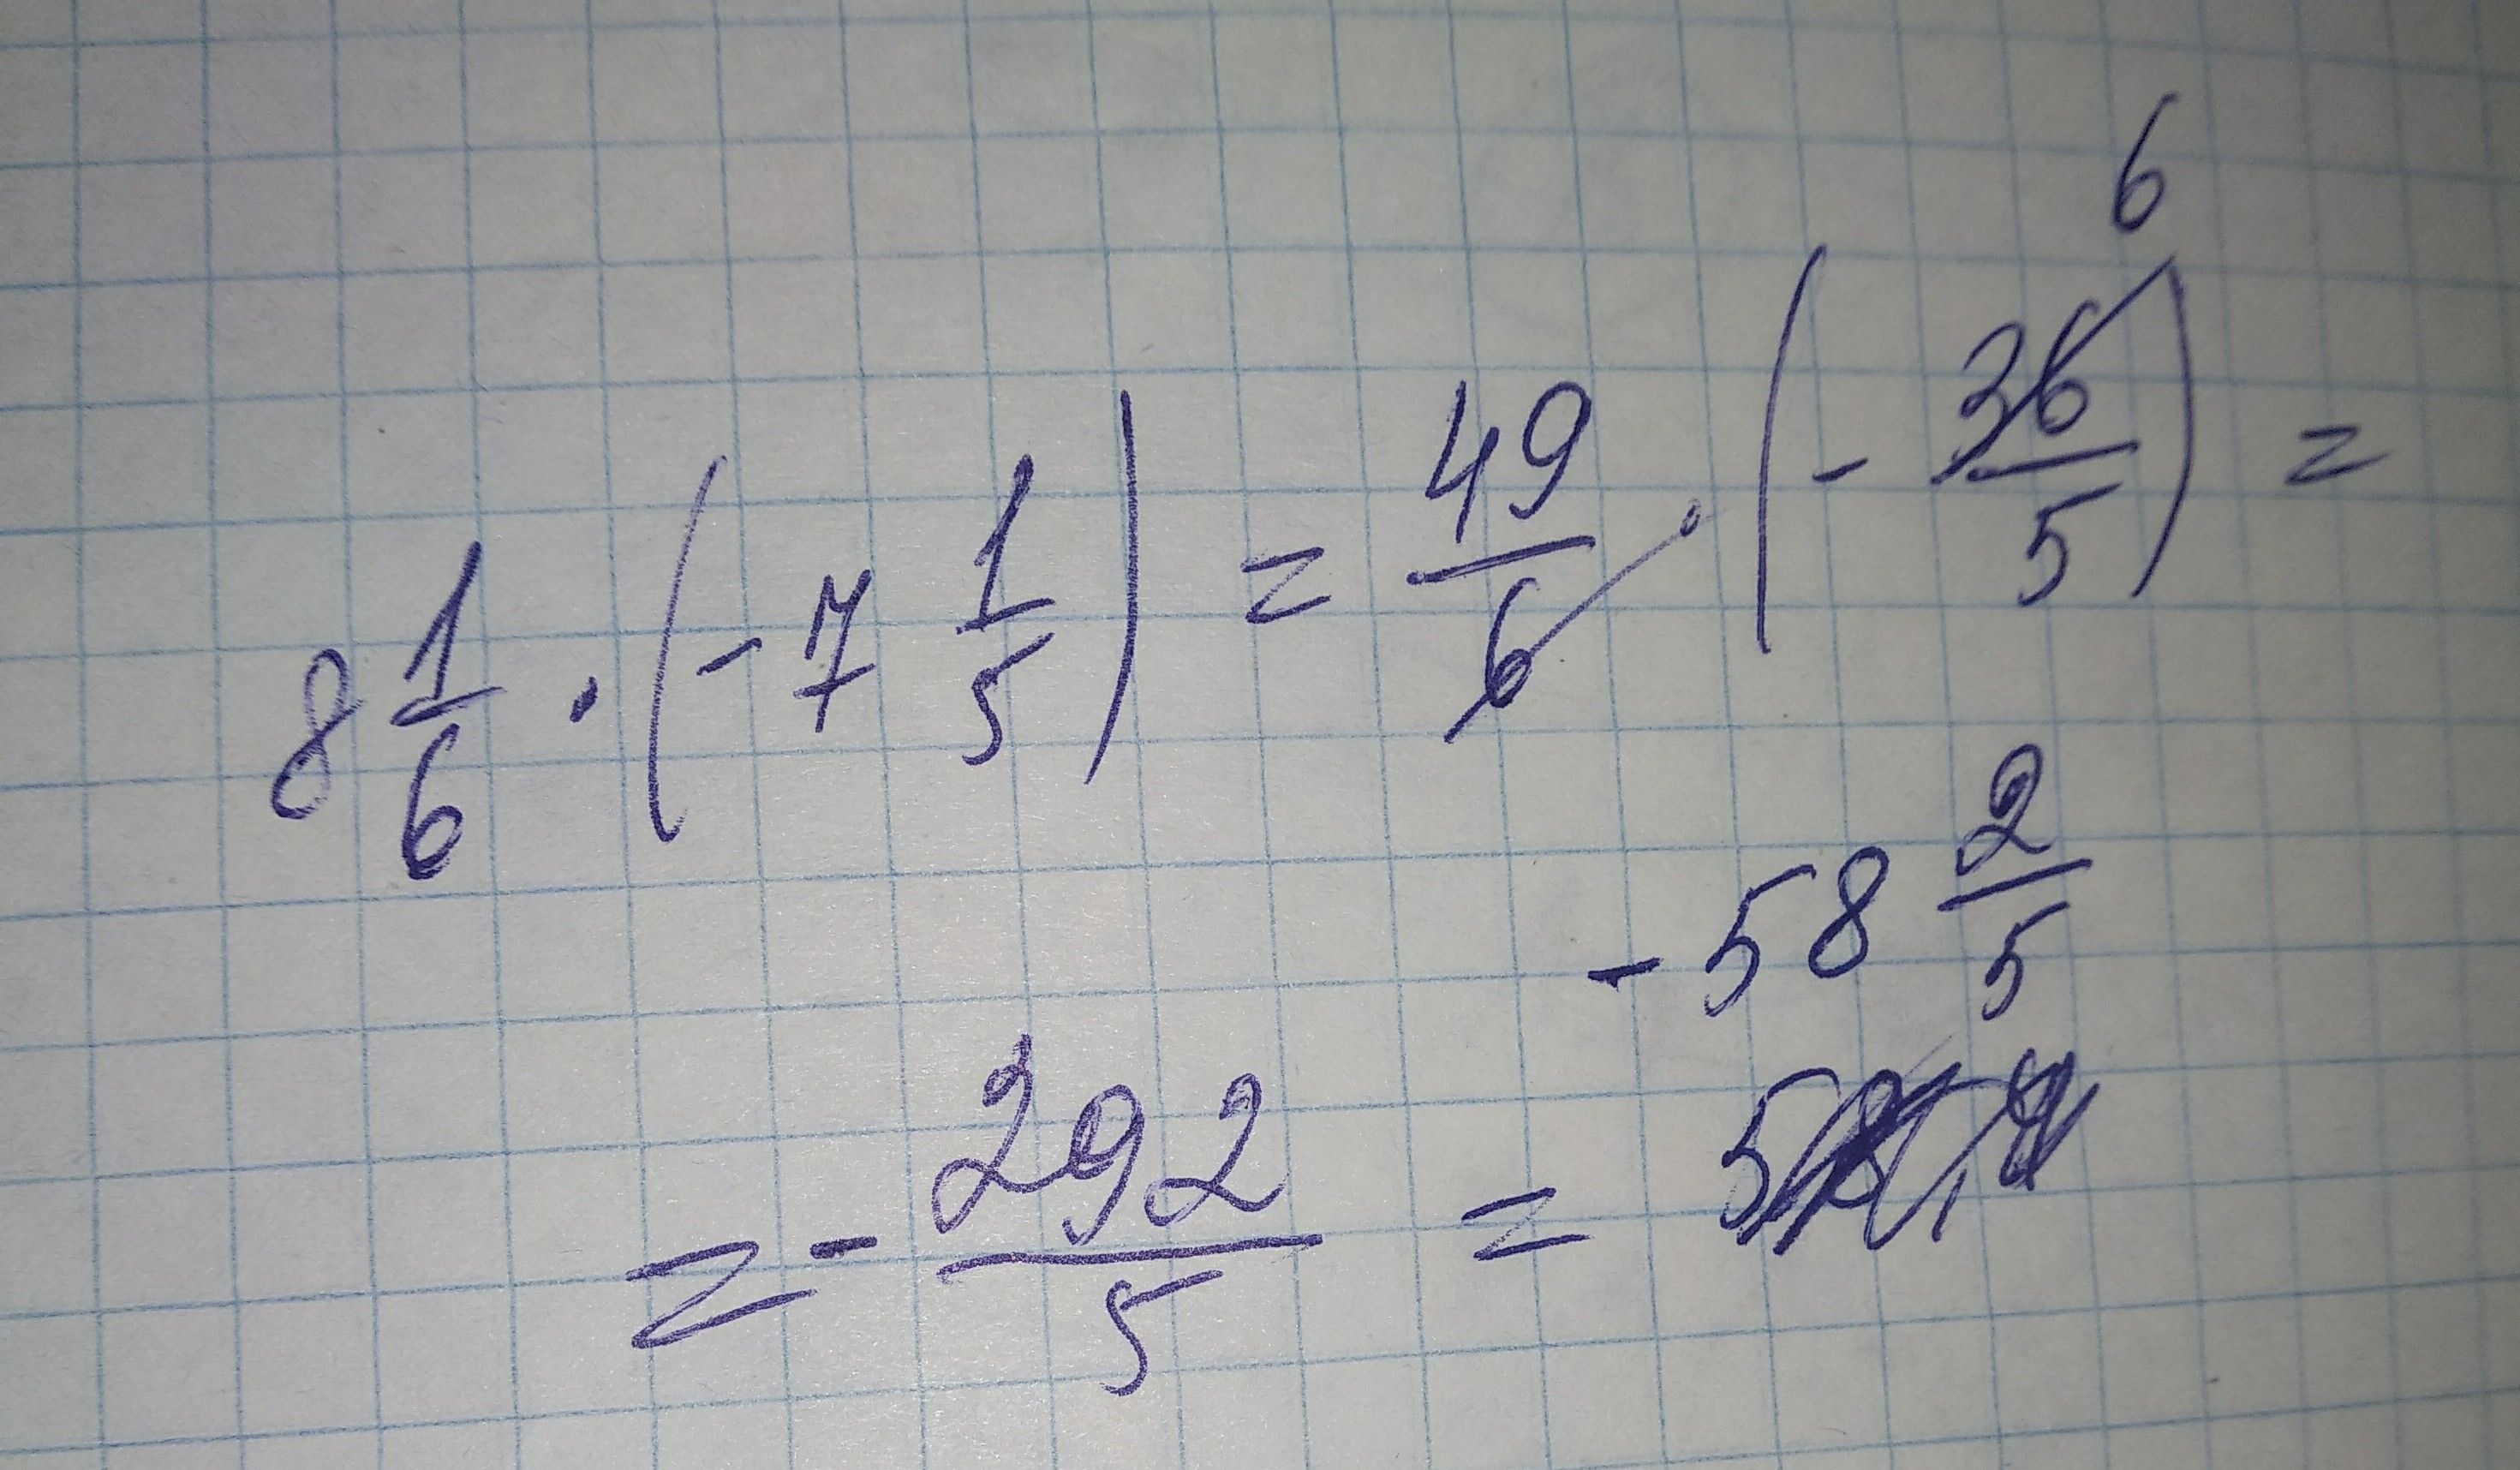 8 1/6 · (-7 1/5) = 49/6 · (- 36/5) =
6
= - 292/5 = -58 2/5